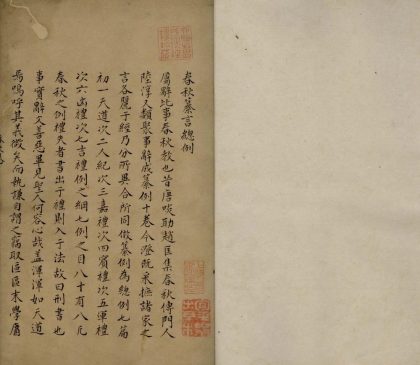 春秋纂言總例
屬辭比事春秋教也昔唐啖助趙匡集春秋傳門人
陸淳又類聚事辭成纂例十卷今澄既采摭諸家之
言各麗于經乃分所異合所同倣纂例為總例七篇
初一天道次二人紀次三嘉禮次四賓禮次五軍禮
次六凶禮次七吉禮例之綱七例之目八十有八凡
春秋之例禮失者書出于禮則入于法故曰刑書也
事實辭文善惡畢見聖人何容心哉蓋渾渾如天道
焉嗚呼其義微矣而執謙自謂之竊取區區末學庸